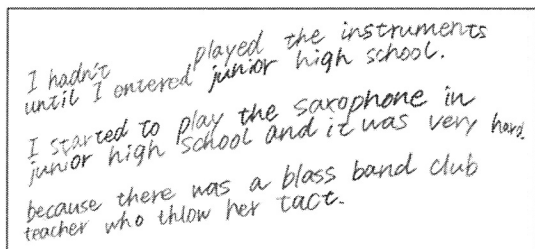 I hadn't played the instruments
until I entered junior high school.
I started to play the saxophone in
junior high school and it was very hard.
because there was a blass band club
teacher who thlow her tact.